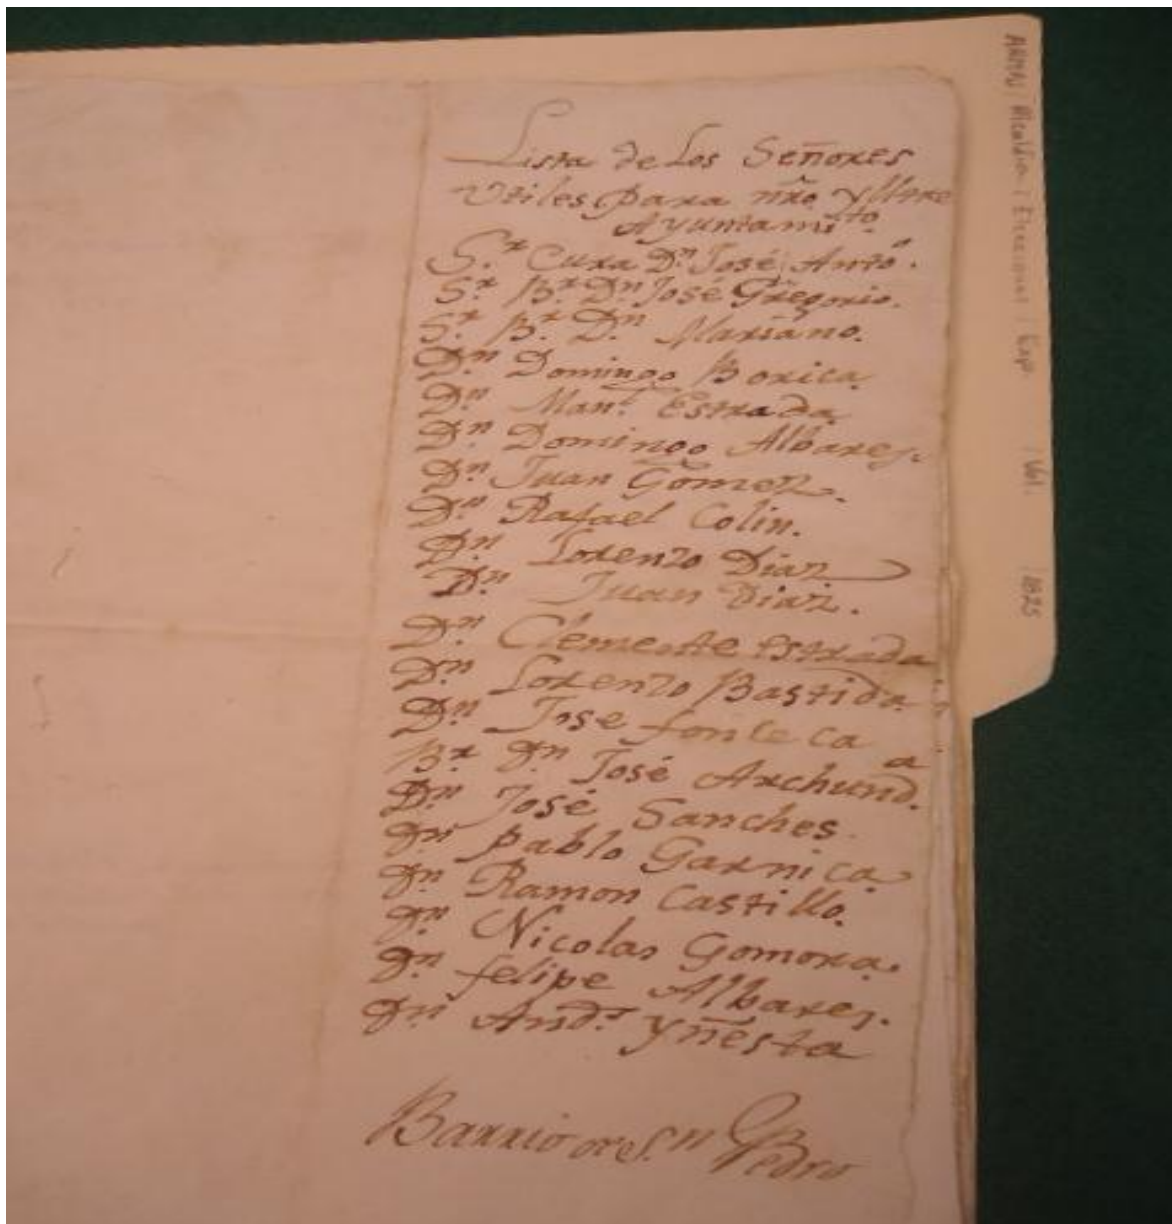 Lista de Los Señores
Utiles para nr̃o Yll̃tre
Ayuntamito.
S.r Cura Dn. José Anto.
S.r B.r Dn. José Gregorio.
S.r B.r D.n Mariano.
Dn Domingo Borica
Dn Man.l Estrada
Dn Domingo Albares.
Dn Juan Gomez.
Dn Rafael Colin.
Dn Lorenzo Diaz
Dn. Juan Diaz.
Dn. Clemente Estrada
Dn Lorenzo Bastida.
Dn Jose fonceca
Br Dn José Archunda.
Dn José Sanches.
Dn Pablo Garnica
Dn Ramon Castillo.
Dn Nicolas Gomora.
Dn. felipe Albares.
Dn And.s Yñesta
Barrio de S.n Pedro
Alcaldia / Elecciones / Exp. / Vol. / 1825